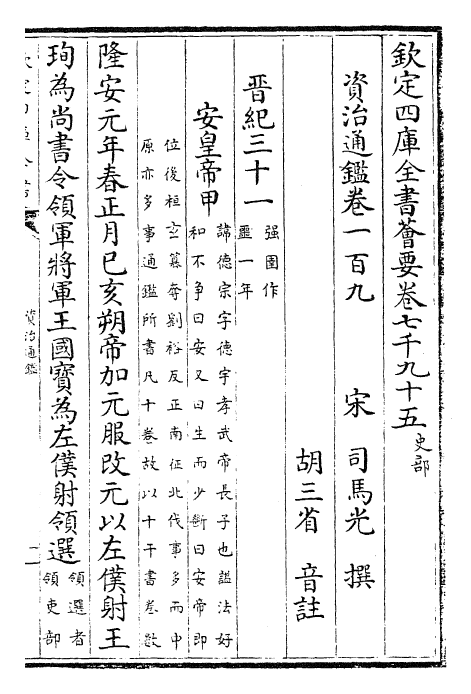 欽定四庫全書薈要卷七千九十五史部
資治通鑑卷一百九
宋　司馬光　撰
胡三省　音註
晉紀三十一强圉作
噩一年
安皇帝甲諱德宗字德宗孝武帝長子也諡法好
和不争曰安又曰生而少斷曰安帝即
位後桓玄篡奪劉裕反正南征北伐事多而中
原亦多事通鑑所書凡十卷故以十干書卷數
隆安元年春正月己亥朔帝加元服改元以左僕射王
珣為尚書令領軍將軍王國寶為左僕射領選領選者
領吏部
資治通鑑